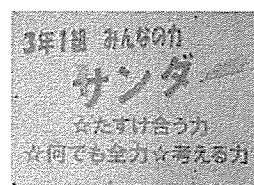 3年1組 みんなの力
サンダー
☆たすけ合う力
☆何でも全力☆考える力